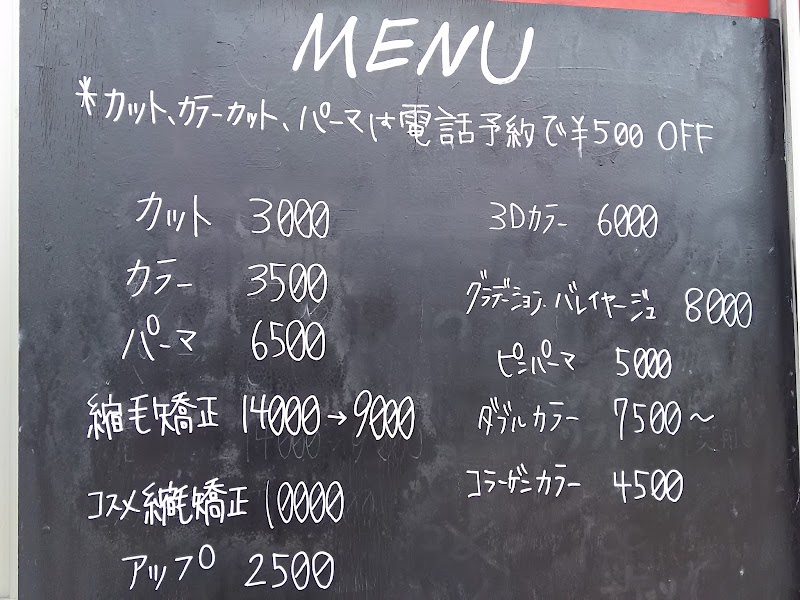 MENU
*カット、カラーカット、パーマは電話予約で¥500 OFF
カット 3000
カラー 3500
パーマ 6500
縮毛矯正 14000→9000
コスメ縮毛矯正 10000
アップ 2500
3Dカラー 6000
グラデーション・バレイヤージュ 8000
ピンパーマ 5000
ダブルカラー 7500～
コラーゲンカラー 4500